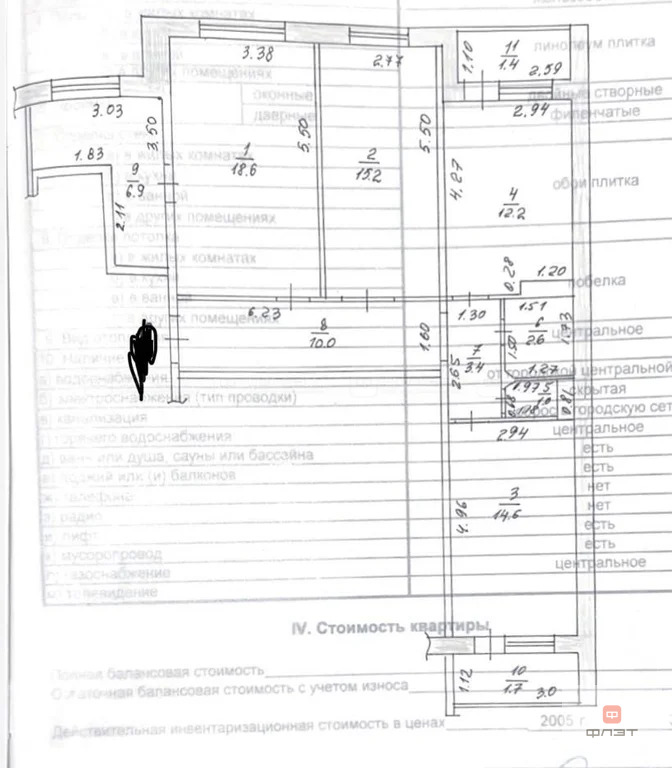 в жилых комнатах
помещениях
линолеум плитка
оконные
двойные створные
дверные
филенчатые
в жилых комнатах
обои плитка
в ванной
в других помещениях
потолка
в жилых комнатах
побелка
в ванной
в других помещениях
центральное
Наличие
а) водоснабжения
от городской центральной
б) электроснабжения (тип проводки)
скрытая
в) канализация
сброс в городскую сеть
г) горячего водоснабжения
центральное
д) ванн или душа, сауны или бассейна
есть
е) лоджий или (и) балконов
есть
ж) телефона
нет
з) радио
нет
и) лифт
есть
к) мусоропровод
есть
л) газоснабжение
центральное
м) телевидение
IV. Стоимость квартиры
Полная балансовая стоимость
Остаточная балансовая стоимость с учетом износа
Действительная инвентаризационная стоимость в ценах 2005 г.
3.38
2.77
1.10
11
1.4
2.59
3.03
3.50
5.50
5.50
2.94
1.83
9
6.9
1
18.6
2
15.2
4.27
4
12.2
2.11
0.28
1.20
6.23
8
10.0
1.60
1.30
1.51
6
2.6
1.73
1.50
7
3.4
2.65
1.27
1.97
5
0.81
2.94
4.96
3
14.6
1.12
10
1.7
3.0
ФЛЭТ